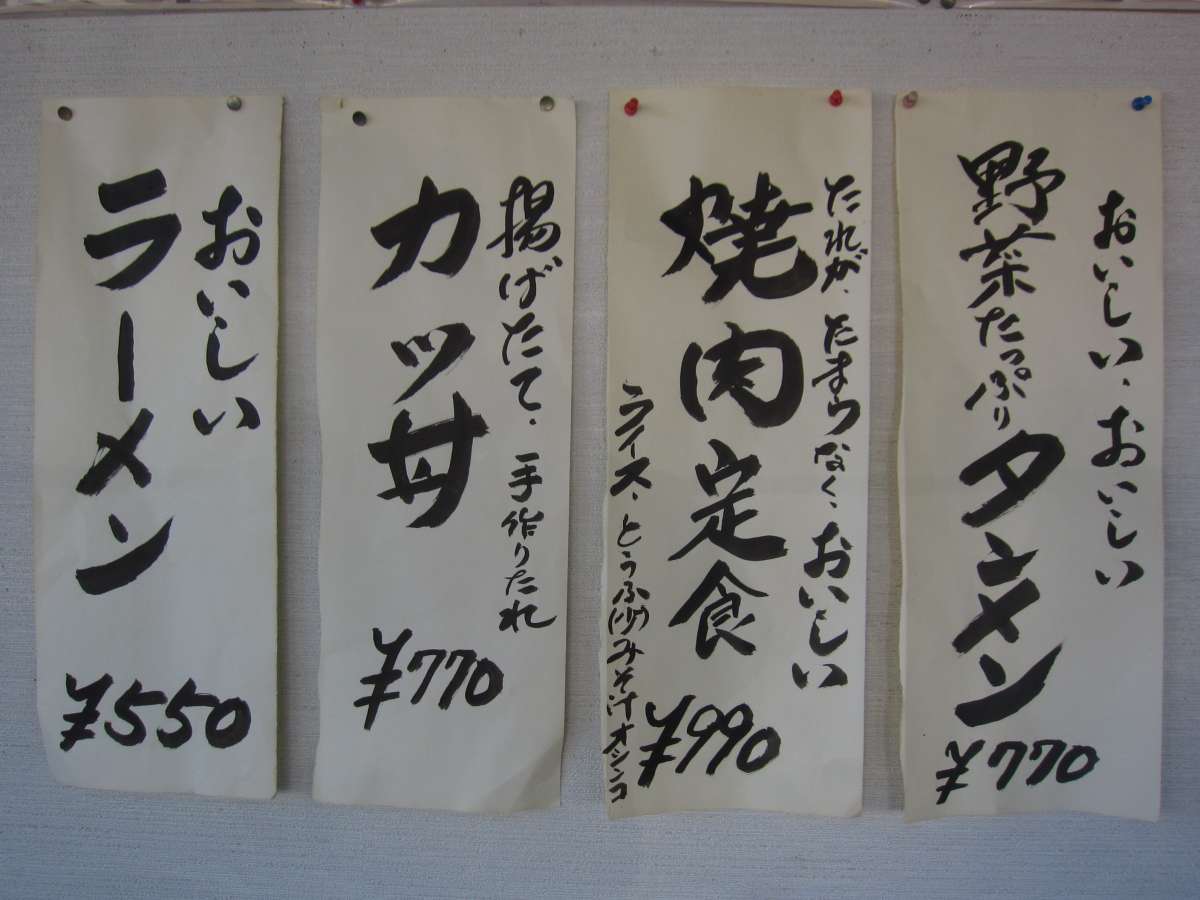 おいしい、おいしい
野菜たっぷりタンメン
¥770
たれが、たまらなく、おいしい
焼肉定食
¥990
ライス、とうふ みそ汁オシンコ
揚げたて、手作りたれ
カツ丼
¥770
おいしい
ラーメン
¥550